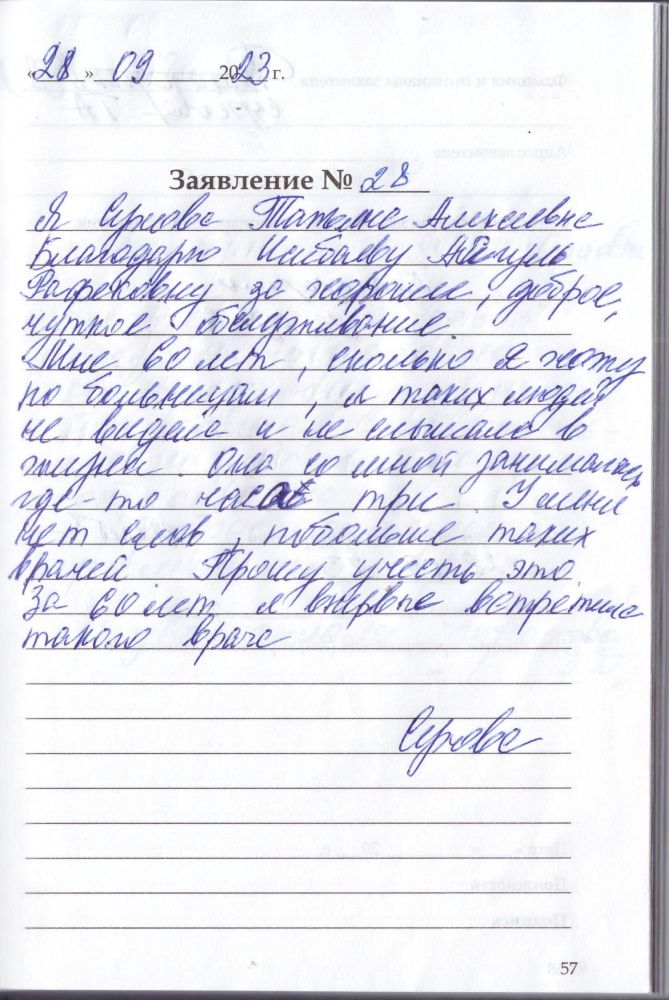 «28» 09 2023 г.
Заявление № 28
Я Сухова Татьяна Алексеевна
Благодарю Ишбаеву Айгуль
Рафековну за хорошие, доброе,
чуткое обслуживание.
Мне 60 лет, сколько я хожу
по больницам, я таких людей
не видела и не слышала в
жизни. Она со мной занималась
где-то часа три. У меня
нет слов, побольше таких
врачей Прошу учесть это
За 60 лет я впервые встретила
такого врача
Сухова
57